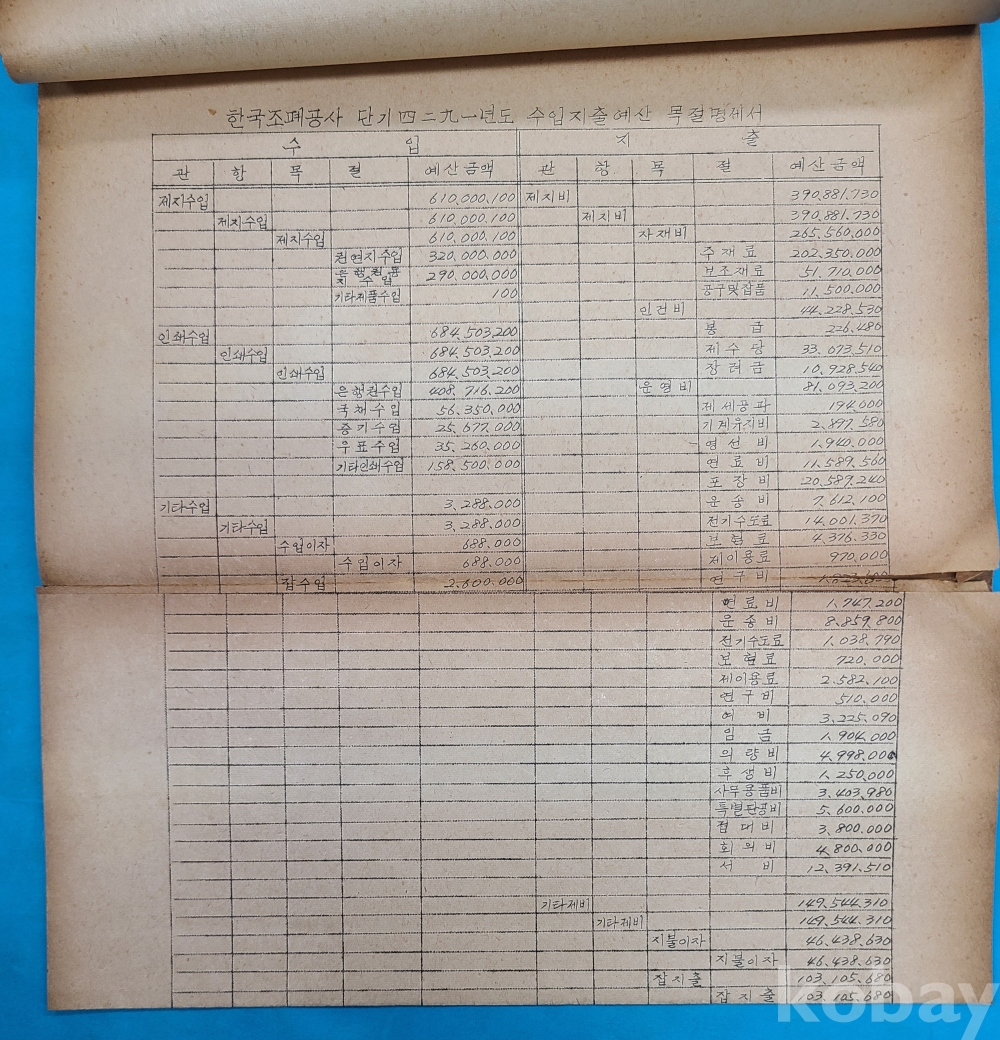 한국조폐공사 단기四二九一년도 수입지출예산 목절명세서
수 입 지 출
관 항 목 절 예산금액 관 항 목 절 예산금액
제지수입 610,000,100 제지비 390,881,730
제지수입 610,000,100 제지비 390,881,730
제지수입 610,000,100 자재비 265,560,000
권연지수입 320,000,000 주재료 202,350,000
은행권용지수입 290,000,000 보조재료 51,710,000
기타제품수입 100 공구및잡품 11,500,000
인건비 44,228,530
인쇄수입 684,503,200 봉급 226,480
인쇄수입 684,503,200 제수당 33,073,510
인쇄수입 684,503,200 장려금 10,928,540
은행권수입 408,716,200 운영비 81,093,200
국채수입 56,350,000 제세공과 194,000
증기수입 25,677,000 기계유지비 2,897,580
우표수입 35,260,000 영선비 1,940,000
기타인쇄수입 158,500,000 연료비 11,589,560
포장비 20,589,240
기타수입 3,288,000 운송비 7,612,100
기타수입 3,288,000 전기수도료 14,001,370
수입이자 688,000 보험료 4,376,330
수입이자 688,000 제이용료 970,000
잡수입 2,600,000 연구비
연료비 1,747,200
운송비 8,859,800
전기수도료 1,038,790
보험료 720,000
제이용료 2,582,100
연구비 510,000
여비 3,225,090
임금 1,904,000
의량비 4,998,000
후생비 1,250,000
사무용품비 3,403,980
특별판공비 5,600,000
접대비 3,800,000
회의비 4,800,000
서비 12,391,510
기타제비 149,544,310
기타제비 149,544,310
지불이자 46,438,630
지불이자 46,438,630
잡지출 103,105,680
잡지출 103,105,680
kobay